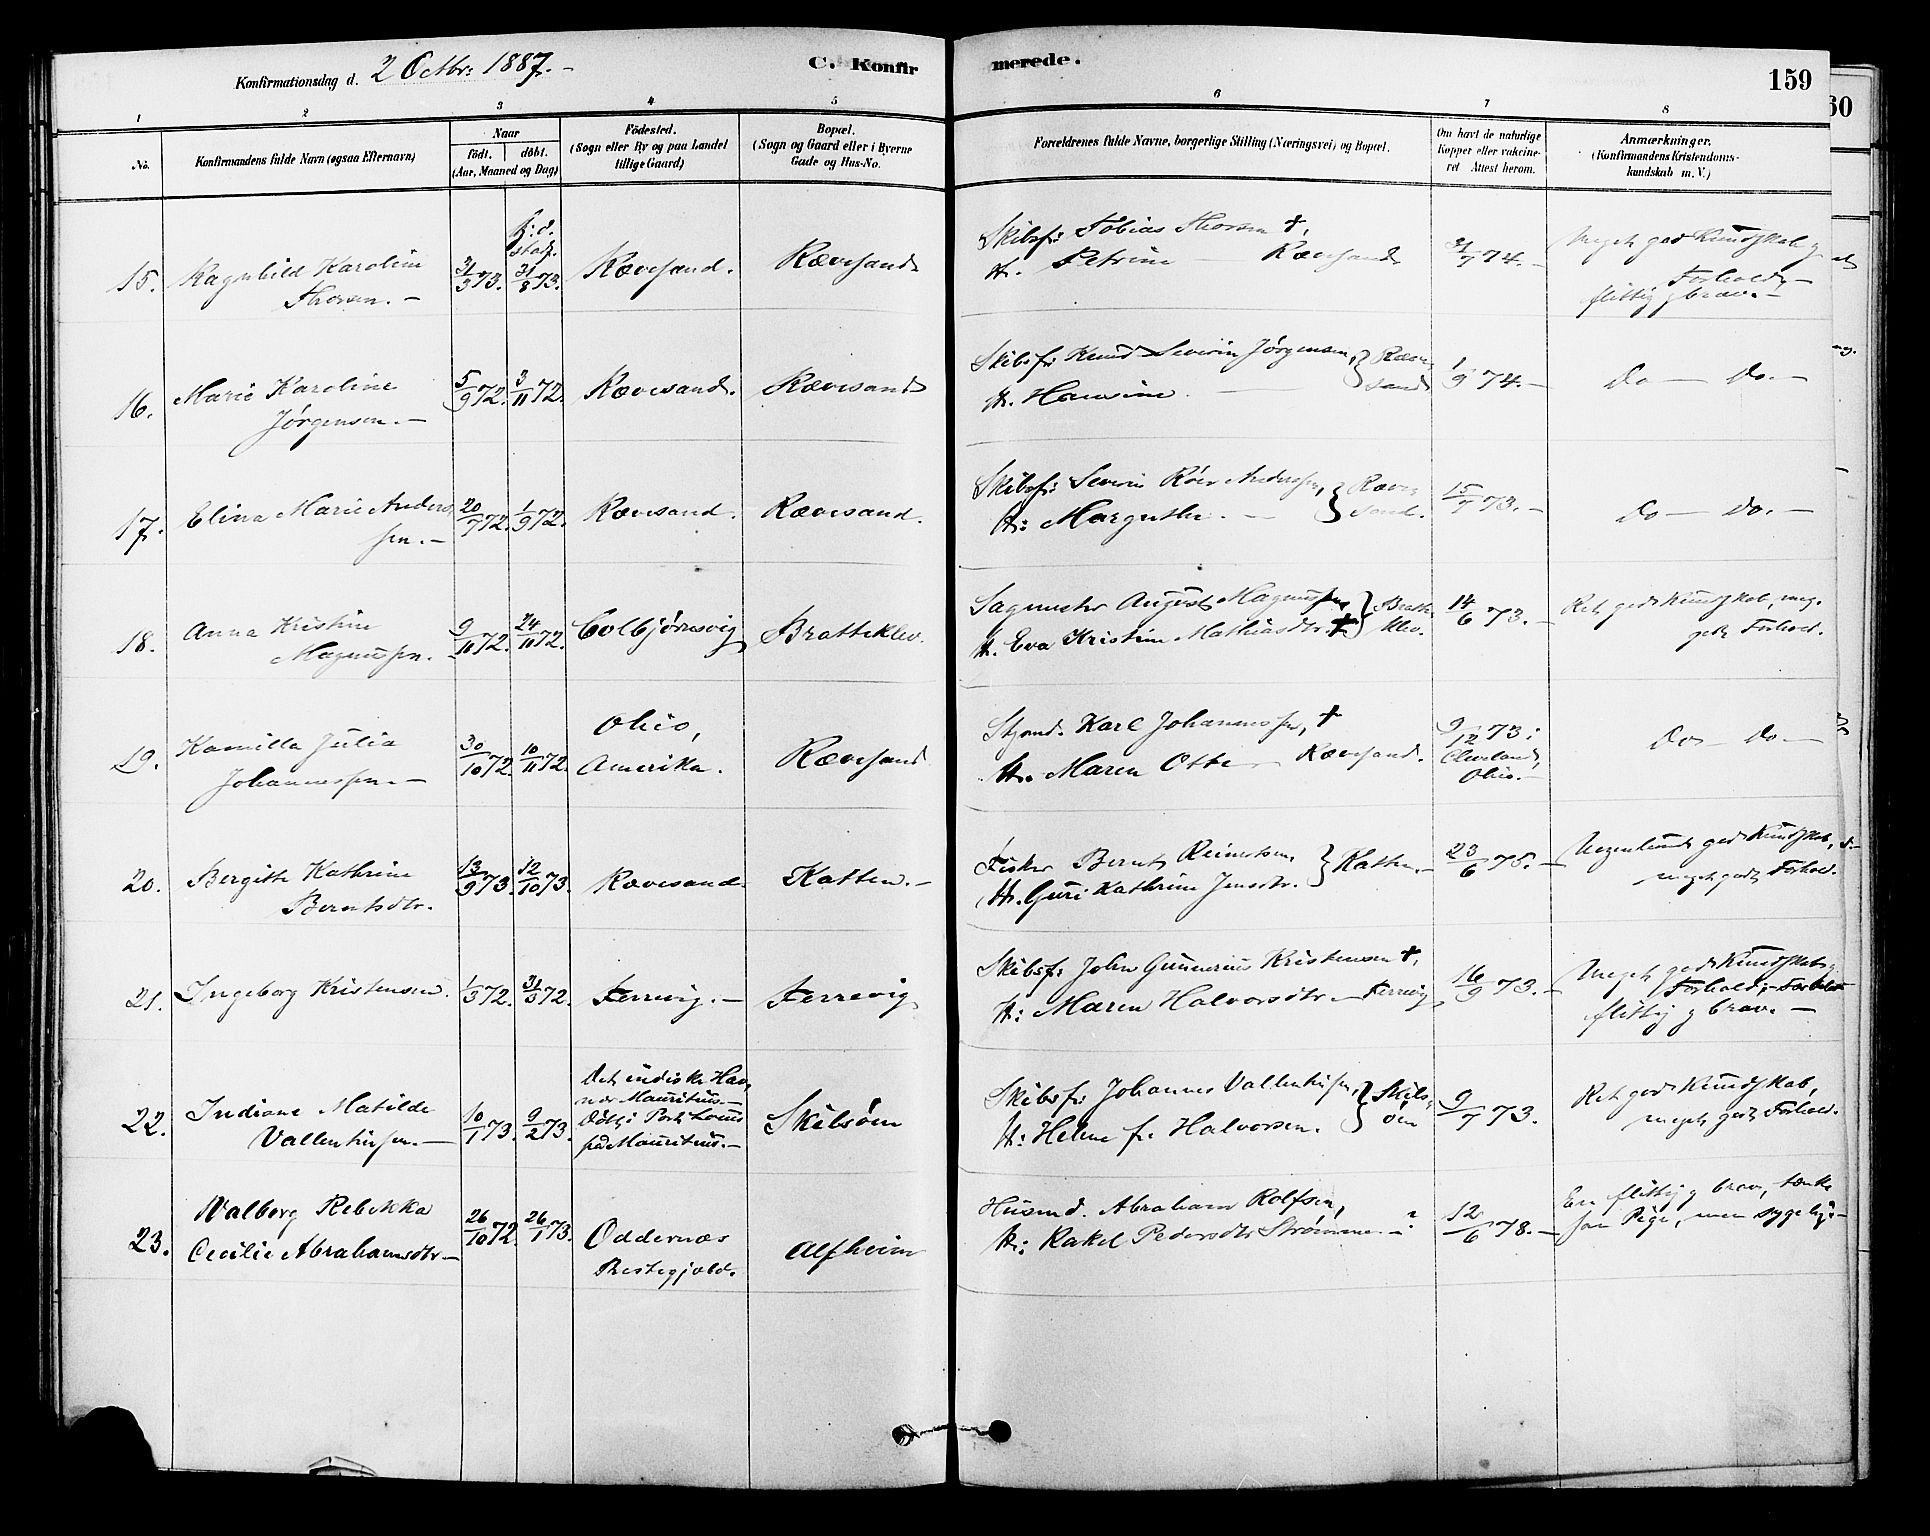 Konfirmationsdag d. 2 Octbr: 1887.-
C. Konfirmerede.
159
60
1 2 3 4 5 6 7 8
No.
Konfirmandens fulde Navn (ogsaa Efternavn)
Naar
födt. döbt.
(Aar, Maaned og Dag)
Födested.
(Sogn eller By og paa Landet
tillige Gaard)
Bopæl.
(Sogn og Gaard eller i Byerne
Gade og Hus-No.
Forældrenes fulde Navne, borgerlige Stilling (Næringsvei) og Bopæl.
Om havt de naturlige
Kopper eller vakcine-
ret Attest herom.
Anmærkninger.
(Konfirmandens Kristendoms-
kundskab m. V.)
15. Ragnhild Karoline
Thorsen. —
31/3 73. 31/8 73.
Rævesand. Rævesand
Skibsf: Tobias Thorsen †,
H. Petrine — Rævesand
/7 74. —
Meget god Kundskab og
Forhold, —
flittig og brav. —
16. Marie Karoline
Jørgensen. —
5/9 72. 3/11 72.
Rævesand. Rævesand
Skibsf: Knud Severin Jørgensen, } Ræve
H. Hansine. — sand
1/9 74. —
Do — Do. —
17. Elina Marie Anders
sen. —
20/7 72. 1/9 72.
Rævesand. Rævesand.
Skibsf: Severin Röer Anderssen, } Ræve
H: Margrethe. — sand.
15/7 73. —
Do — Do. —
18. Anna Kristine
Magnussen.
9/10 72. 24/11 72.
Colbjørnsvig Bratteklev.
Sagmester August Magnussen } Bratte
H. Eva Kristine Mathiasdtr. † klev.
14/6 73. —
Ret god Kundskab, meg.
godt Forhold.
19. Kamilla Julia
Johannessen. —
30/10 72. 10/11 72.
Ohio,
Amerika.
Rævesand
Styrmd. Karl Johannessen, †
H. Maren Otte — Rævesand.
9/12 73 i
Cleveland,
Ohio. —
Do — Do —
20. Bergitte Kathrine
Berntsdtr.
13/9 73. 12/10 73.
Rævesand. Katten. —
Fisker Bernt Reinertsen, } Katten. —
H. Guri Kathrine Jensdtr.
23/6 75. —
Nogenlunde god Kundskab,
meget godt Forhold.
21. Ingeborg Kristensen.
1/3 72. 31/3 72.
Ferrevig. — Ferrevig
Skibsf: John Gunnerius Kristensen †,
H: Maren Halvorsdtr — Ferrevig
16/9 73. —
Meget god Kundskab og
Forhold, —
flittig og brav. —
22. Indiane Matilde
Vallentinsen. —
10/1 73. 9/2 73.
Det indiske Hav,
nær Mauritius. —
Döbt i Port Louis
på Mauritius. —
Skilsöen
Skibsf: Johannes Vallentinsen, } Skils
H: Helene f. Halvorsen. öen
9/7 73.
Ret god Kundskab,
meget godt Forhold.
23. Valborg Rebekka
Cecilie Abrahamsdtr —
26/10 72. 26/1 73.
Oddernæs
Prestegjeld.
Alfheim
Husmd. Abraham Rolfsen,
H: Rakel Pedersdtr Strömme. —
12/6 78. —
En flittig og brav, tænk-
som Pige, men sygelig. —